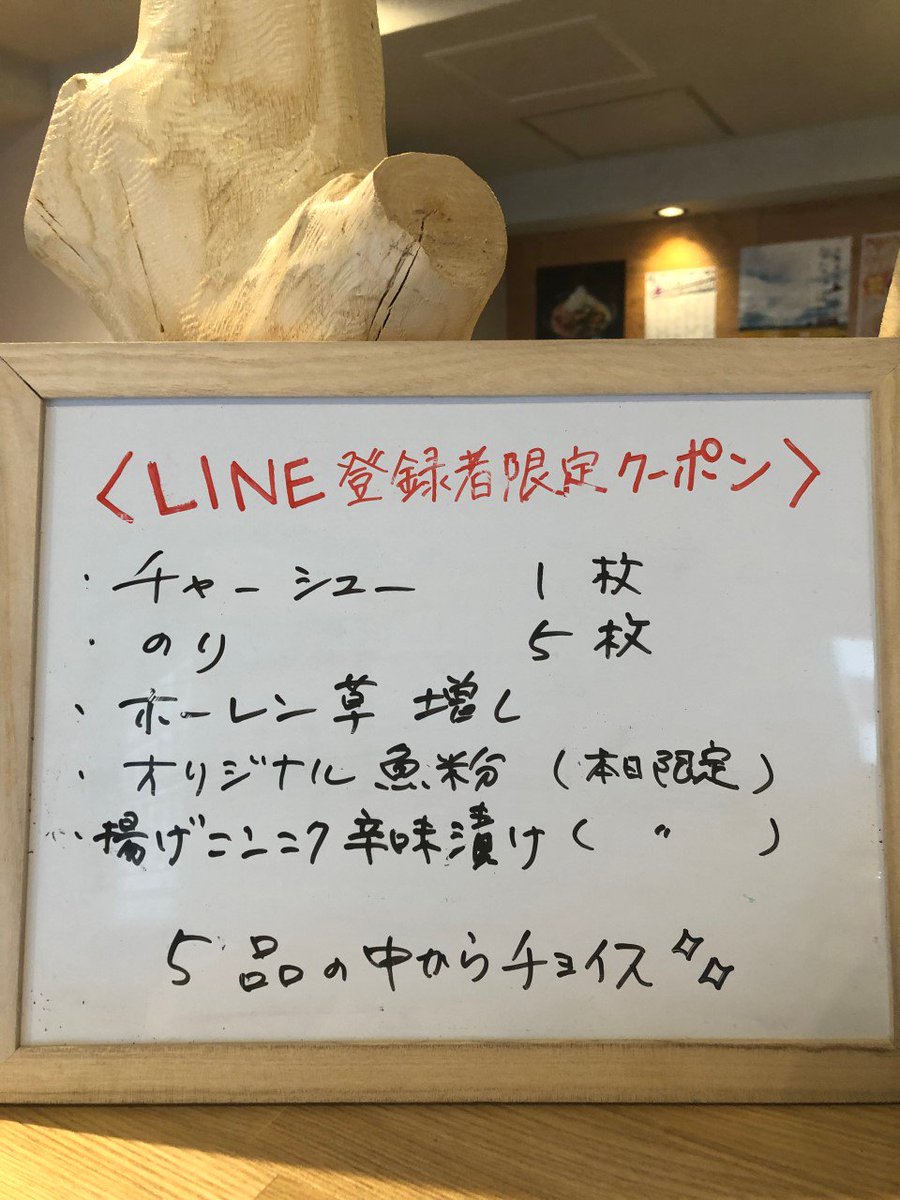 〈LINE登録者限定クーポン〉
・チャーシュー 1枚
・のり 5枚
・ホーレン草 増し
・オリジナル魚粉 (本日限定)
・揚げニンニク辛味漬け( 〃 )
5品の中からチョイス